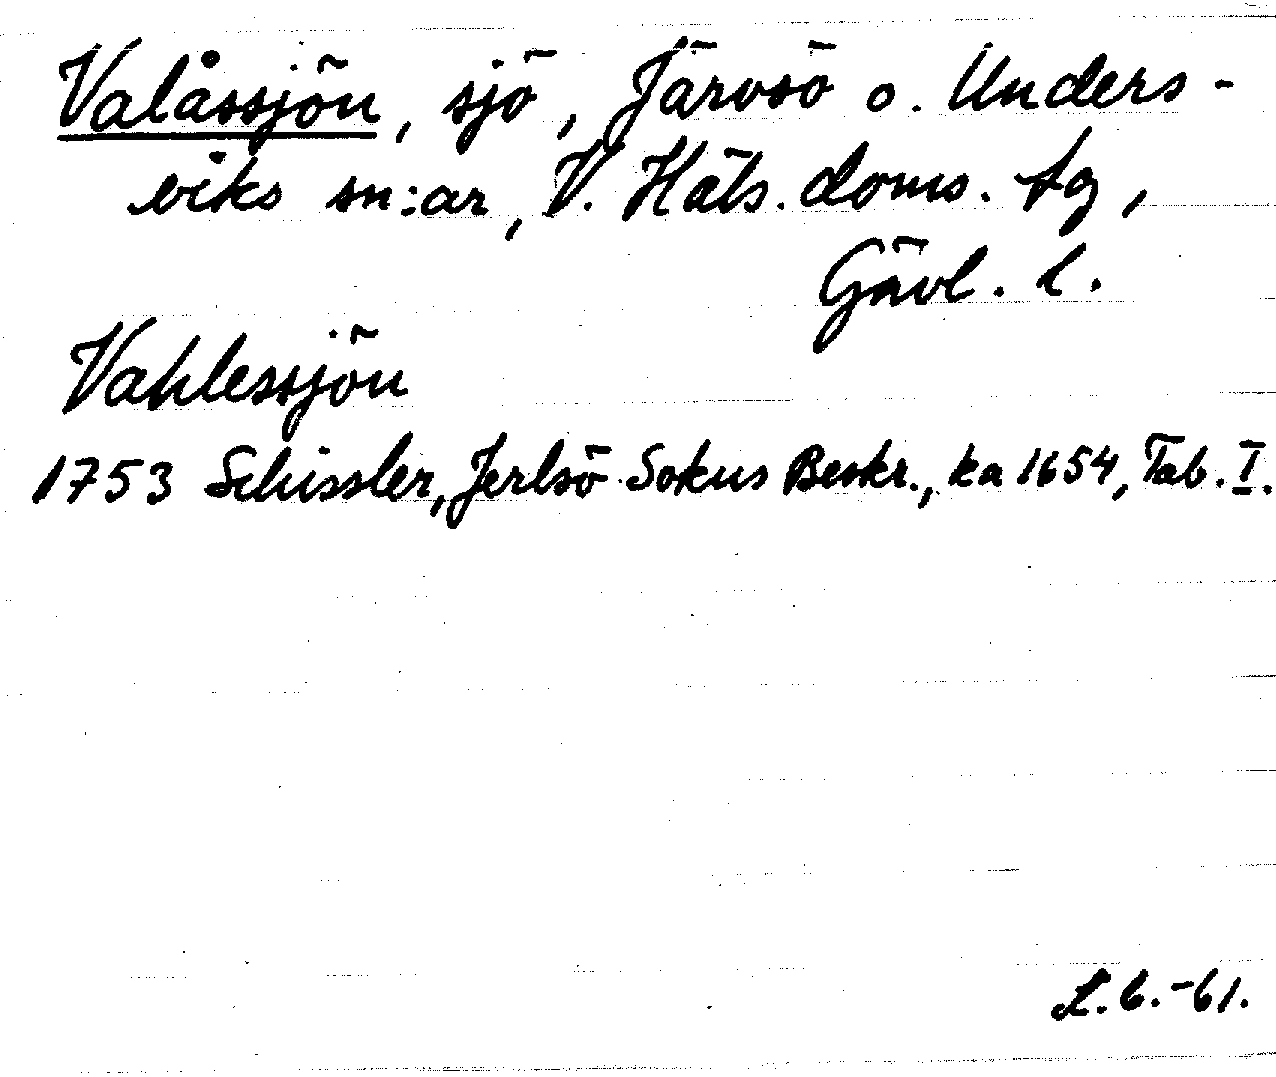 Valåssjön, sjö, Järvsö o. Unders-
viks sn:ar, V. Häls. doms. tg,
Gävl. l.
Vahlessjön
1753 Schissler, Jerlsö Sokns Beskr., ka 1654, Tab. I.
L.b.-61.